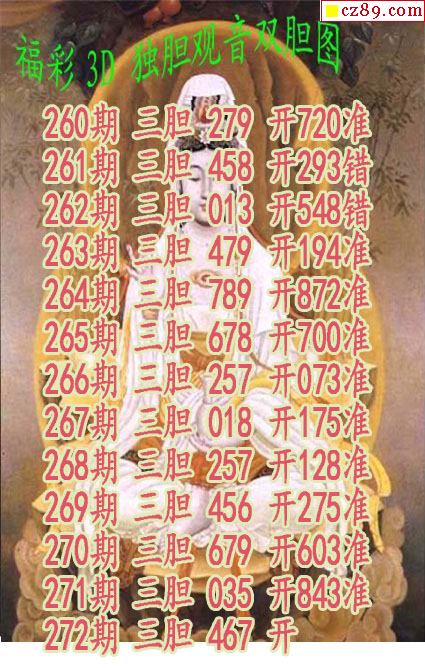 cz89.com
福彩 3D 独胆观音双胆图
260期 三胆 279 开720准
261期 三胆 458 开293错
262期 三胆 013 开548错
263期 三胆 479 开194准
264期 三胆 789 开872准
265期 三胆 678 开700准
266期 三胆 257 开073准
267期 三胆 018 开175准
268期 三胆 257 开128准
269期 三胆 456 开275准
270期 三胆 679 开603准
271期 三胆 035 开843准
272期 三胆 467 开